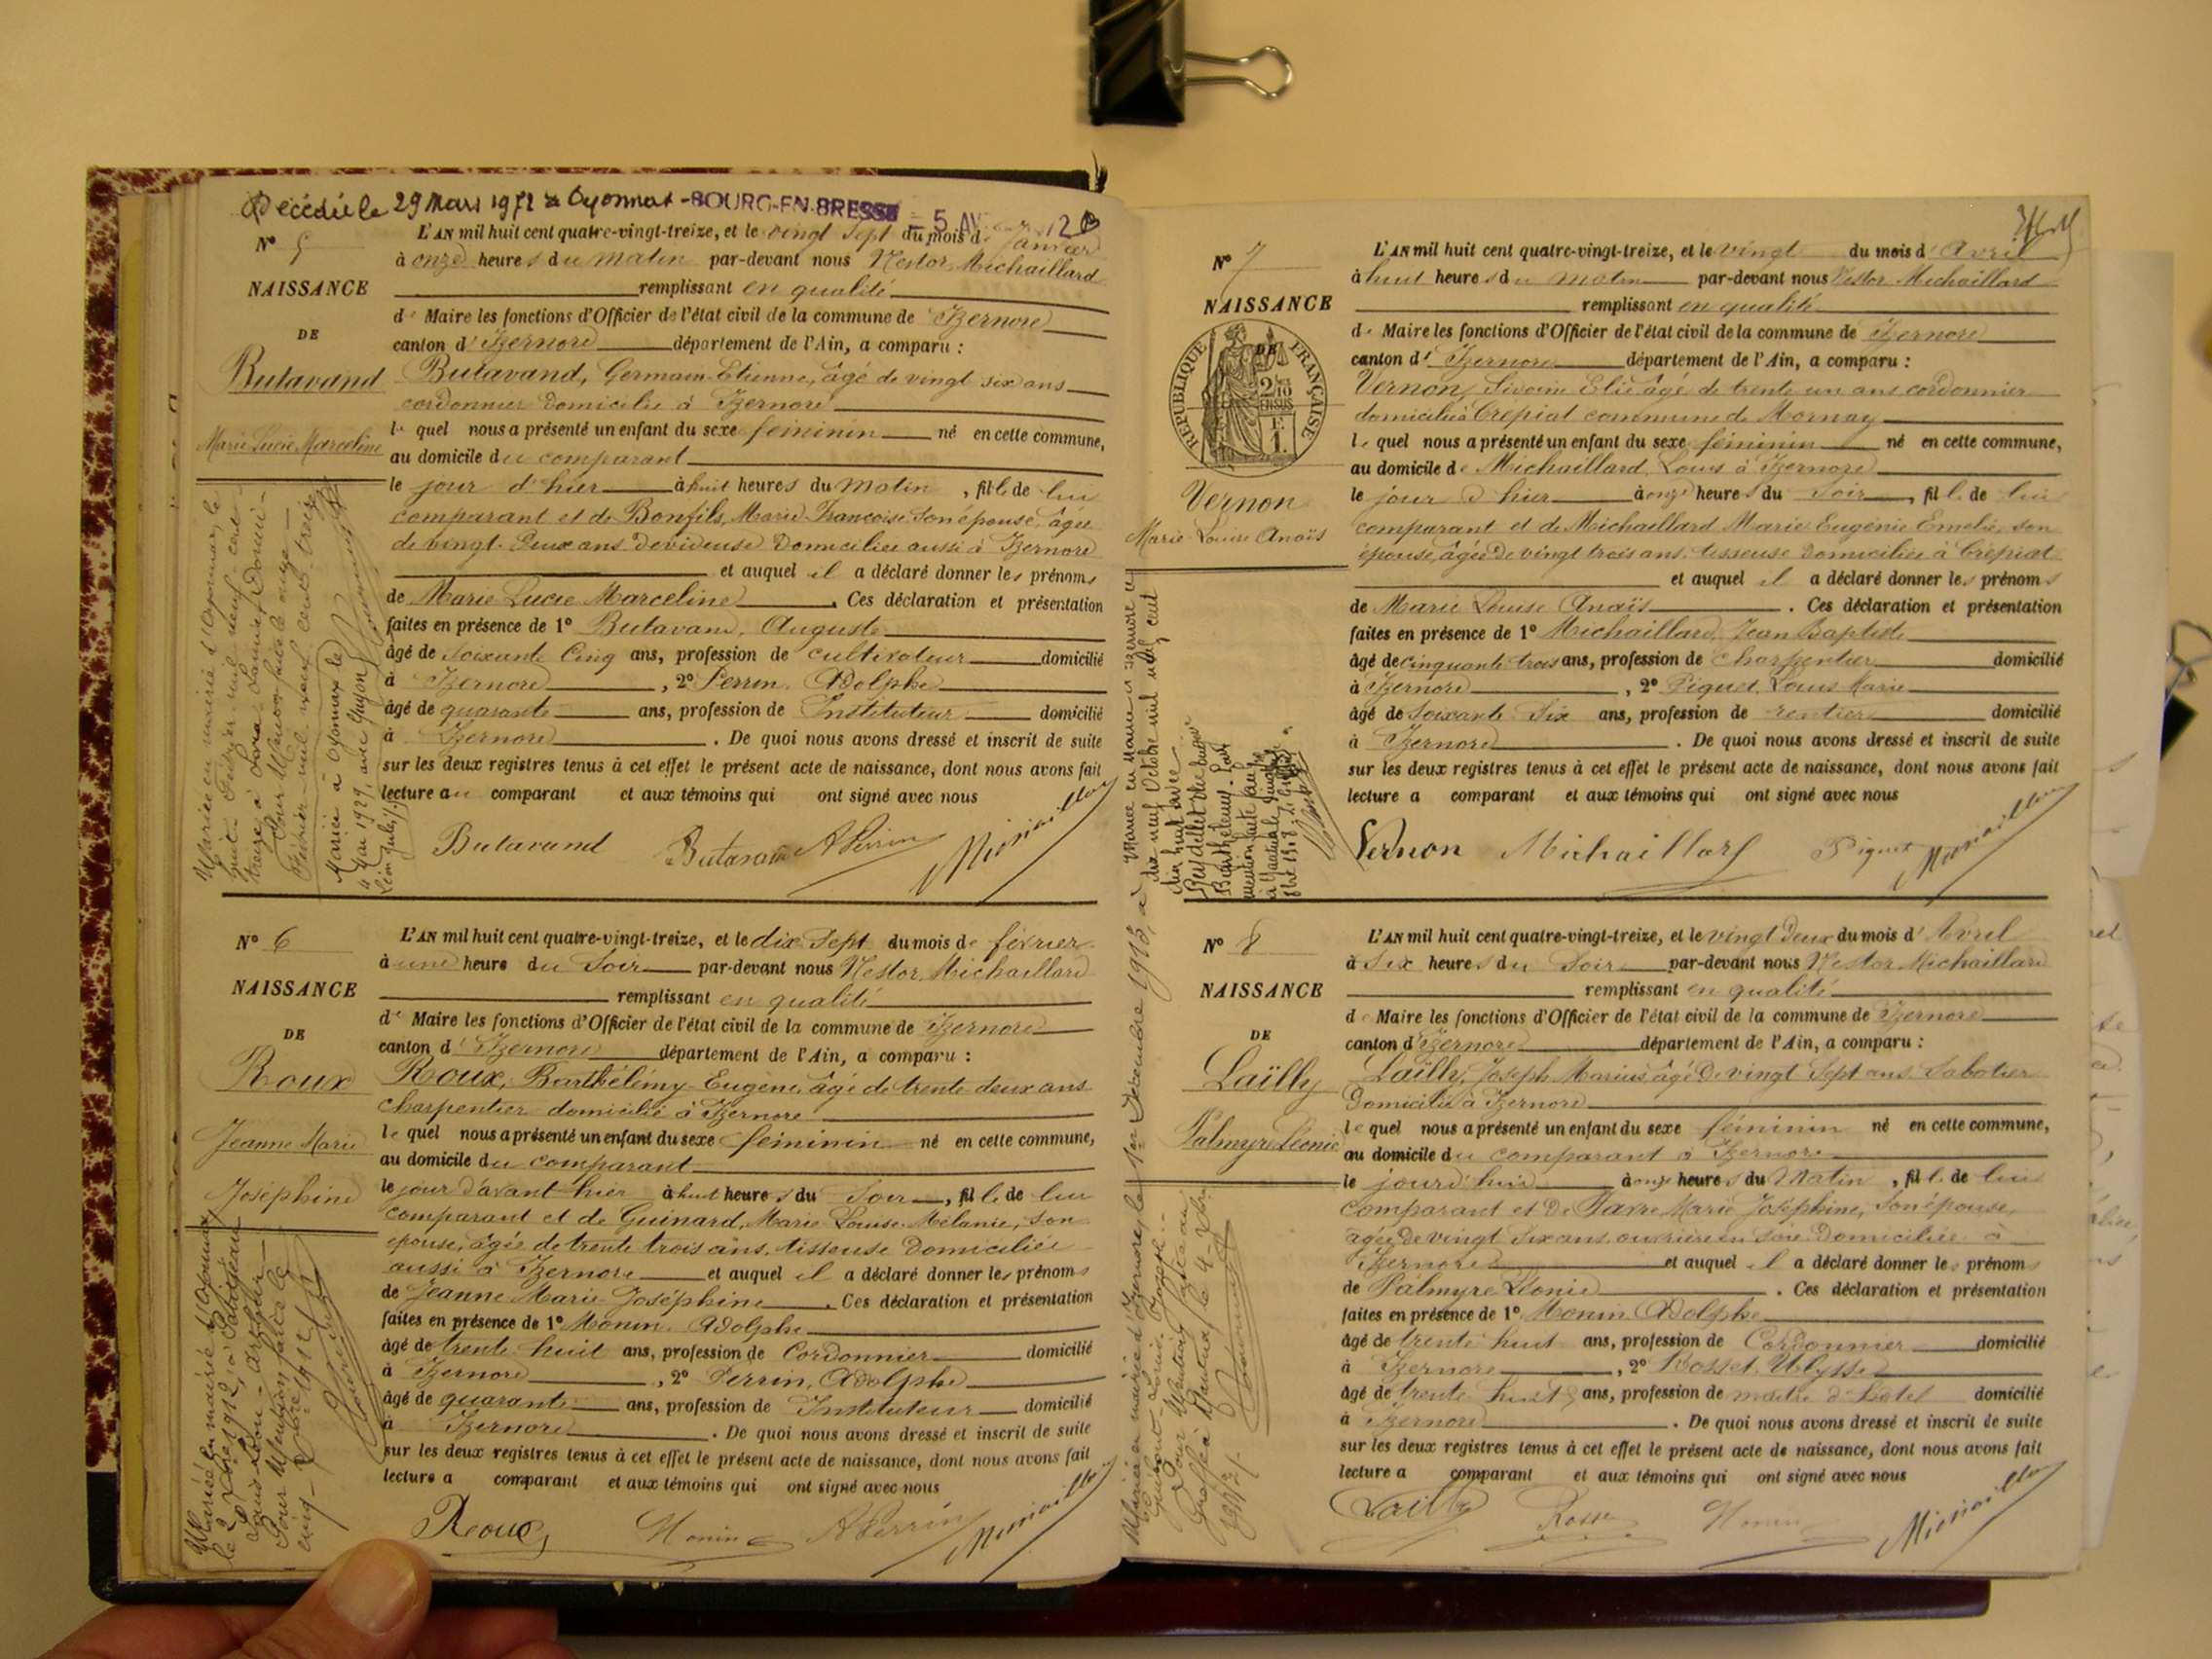 Décédée le 29 Mars 1972 à Oyonnax - BOURG-EN-BRESSE - 5 AV
N° 5
NAISSANCE
DE
Butavand
Marie Lucie Marceline
L'AN mil huit cent quatre-vingt-treize, et le vingt Sept du mois de Janvier
à onze heures du matin par-devant nous Nestor Michaillard
remplissant en qualité
de Maire les fonctions d'Officier de l'état civil de la commune de Izernore
canton d'Izernore département de l'Ain, a comparu :
Butavand, Germain Etienne, âgé de vingt six ans
cordonnier domicilié à Izernore
lequel nous a présenté un enfant du sexe féminin né en cette commune,
au domicile du comparant
le jour d'hier à huit heures du matin, fille de lui
comparant et de Bonfils, Marie Françoise son épouse, âgée
de vingt deux ans devideuse domiciliée aussi à Izernore
et auquel il a déclaré donner les prénoms
de Marie Lucie Marceline. Ces déclaration et présentation
faites en présence de 1° Butavand, Auguste
âgé de soixante Cinq ans, profession de cultivateur domicilié
à Izernore, 2° Perrin, Adolphe
âgé de quarante ans, profession de Instituteur domicilié
à Izernore. De quoi nous avons dressé et inscrit de suite
sur les deux registres tenus à cet effet le présent acte de naissance, dont nous avons fait
lecture au comparant et aux témoins qui ont signé avec nous
Butavand Butavand A Perrin Michaillard
Mariée à Oyonnax le
4 Mai 1929, avec Guyon
N° 6
NAISSANCE
DE
Roux
Jeanne Marie
Joséphine
L'AN mil huit cent quatre-vingt-treize, et le dix Sept du mois de février
à une heure du Soir par-devant nous Nestor Michaillard
remplissant en qualité
de Maire les fonctions d'Officier de l'état civil de la commune de Izernore
canton d'Izernore département de l'Ain, a comparu :
Roux, Barthélémy Eugène, âgé de trente deux ans
charpentier domicilié à Izernore
lequel nous a présenté un enfant du sexe féminin né en cette commune,
au domicile du comparant
le jour d'avant hier à huit heures du Soir, fille de lui
comparant et de Guinard, Marie Louise Mélanie, son
épouse, âgée de trente trois ans, tisseuse domiciliée
aussi à Izernore et auquel il a déclaré donner les prénoms
de Jeanne Marie Joséphine. Ces déclaration et présentation
faites en présence de 1° Monin Adolphe
âgé de trente huit ans, profession de Cordonnier domicilié
à Izernore, 2° Perrin, Adolphe
âgé de quarante ans, profession de Instituteur domicilié
à Izernore. De quoi nous avons dressé et inscrit de suite
sur les deux registres tenus à cet effet le présent acte de naissance, dont nous avons fait
lecture a comparant et aux témoins qui ont signé avec nous
Roux Monin A Perrin Michaillard
N° 7
NAISSANCE
DE
RÉPUBLIQUE FRANÇAISE
Vernon
Marie Louise Anaïs
L'AN mil huit cent quatre-vingt-treize, et le vingt du mois d'Avril
à huit heures du matin par-devant nous Nestor Michaillard
remplissant en qualité
de Maire les fonctions d'Officier de l'état civil de la commune de Izernore
canton d'Izernore département de l'Ain, a comparu :
Vernon, Elie âgé de trente un ans cordonnier
domicilié à Crépiat commune de Mornay
lequel nous a présenté un enfant du sexe féminin né en cette commune,
au domicile de Michaillard, Louis à Izernore
le jour d'hier à onze heures du Soir, fille de lui
comparant et de Michaillard Marie Eugénie Emélie, son
épouse, âgée de vingt trois ans, tisseuse domiciliée à Crépiat
et auquel il a déclaré donner les prénoms
de Marie Louise Anaïs. Ces déclaration et présentation
faites en présence de 1° Michaillard, Jean Baptiste
âgé de cinquante trois ans, profession de charpentier domicilié
à Izernore, 2° Piquet, Louis Marie
âgé de soixante six ans, profession de rentier domicilié
à Izernore. De quoi nous avons dressé et inscrit de suite
sur les deux registres tenus à cet effet le présent acte de naissance, dont nous avons fait
lecture a comparant et aux témoins qui ont signé avec nous
Vernon Michaillard Piquet Michaillard
N° 8
NAISSANCE
DE
Laïlly
Palmyre Léonie
L'AN mil huit cent quatre-vingt-treize, et le vingt deux du mois d'Avril
à six heures du Soir par-devant nous Nestor Michaillard
remplissant en qualité
de Maire les fonctions d'Officier de l'état civil de la commune de Izernore
canton d'Izernore département de l'Ain, a comparu :
Laïlly, Joseph Marius, âgé de vingt Sept ans Sabotier
domicilié à Izernore
lequel nous a présenté un enfant du sexe féminin né en cette commune,
au domicile du comparant à Izernore
le jourd'hui à onze heures du Matin, fille de lui
comparant et de Favre Marie Joséphine, son épouse,
âgée de vingt six ans, ouvrière en soie domiciliée à
Izernore et auquel il a déclaré donner les prénoms
de Palmyre Léonie. Ces déclaration et présentation
faites en présence de 1° Monin Adolphe
âgé de trente huit ans, profession de Cordonnier domicilié
à Izernore, 2° Rosset, Ulysse
âgé de trente huit ans, profession de maître d'hôtel domicilié
à Izernore. De quoi nous avons dressé et inscrit de suite
sur les deux registres tenus à cet effet le présent acte de naissance, dont nous avons fait
lecture a comparant et aux témoins qui ont signé avec nous
Lailly Rosset Monin Michaillard